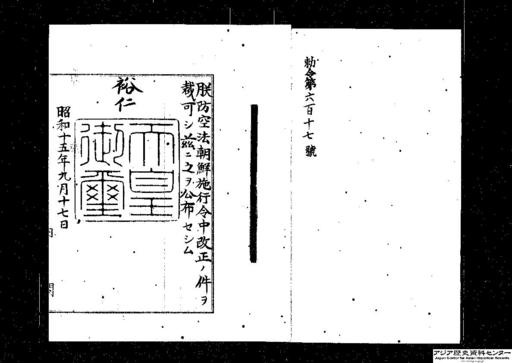 勅令第六百十七號
朕防空法朝鮮施行令中改正ノ件ヲ
裁可シ茲ニ之ヲ公布セシム
裕仁
天皇
御璽
昭和十五年九月十七日
アジア歴史資料センター
Japan Center for Asian Historical Records